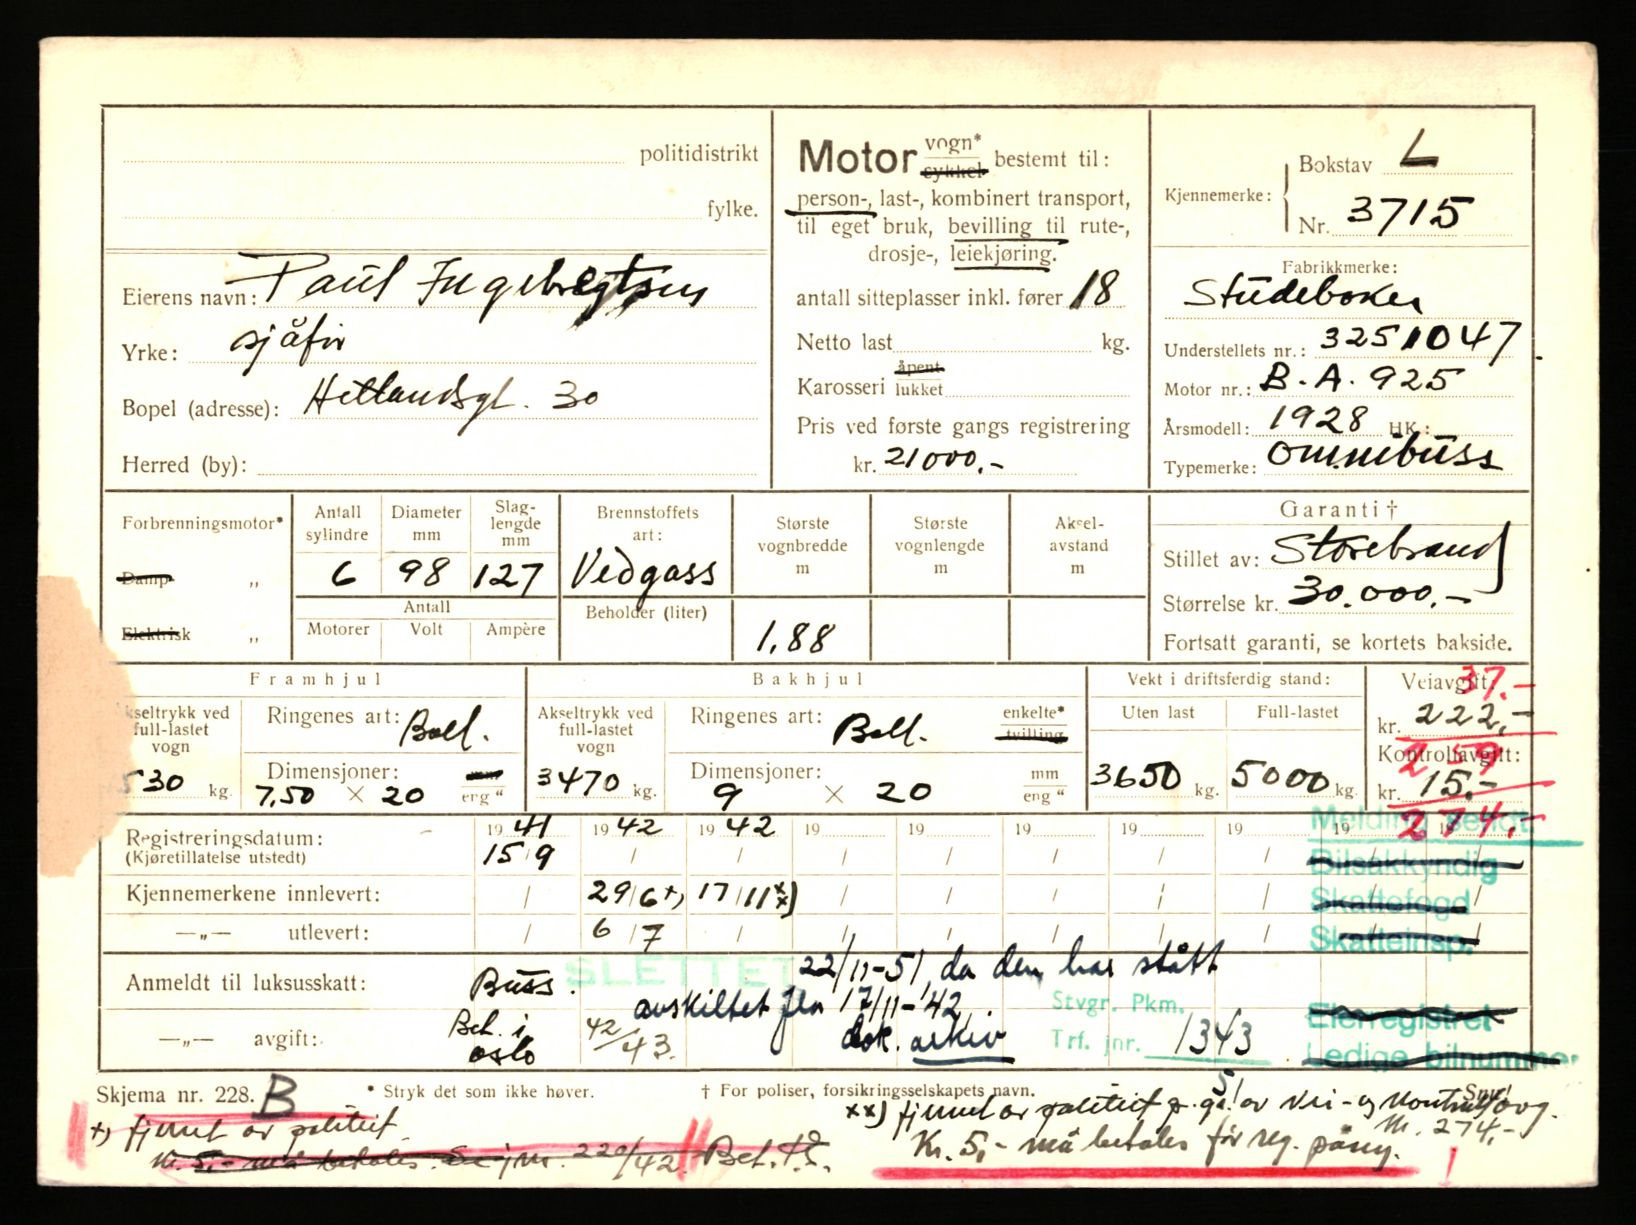 politidistrikt
fylke.
Eierens navn: Paul Ingebregtsen
Yrke: sjåfør
Bopel (adresse): Hetlandsgt. 30
Herred (by):
Motor vogn* sykkel bestemt til:
person-, last-, kombinert transport,
til eget bruk, bevilling til rute-,
drosje-, leiekjøring.
antall sitteplasser inkl. fører 18
Netto last kg.
Karosseri åpent lukket
Pris ved første gangs registrering
kr. 21000.-
Kjennemerke: Bokstav L
Nr. 3715
Fabrikkmerke:
Studebaker
Understellets nr.: 3251047
Motor nr.: B.A. 925
Årsmodell: 1928 HK.:
Typemerke: Omnibuss
Forbrenningsmotor*
Damp „
Elektrisk „
Antall sylindre
6
Diameter mm
98
Slag-
lengde
mm
127
Antall
Motorer Volt Ampère
Brennstoffets
art:
Vedgass
Beholder (liter)
Største
vognbredde
m
1,88
Største
vognlengde
m
Aksel-
avstand
m
Garanti †
Stillet av: Storebrand
Størrelse kr. 30.000,-
Fortsatt garanti, se kortets bakside.
Framhjul
kseltrykk ved
full-lastet
vogn
530 kg.
Ringenes art: Ball.
Dimensjoner: mm
7,50 × 20 eng "
Bakhjul
Akseltrykk ved
full-lastet
vogn
3470 kg.
Ringenes art: Ball. enkelte* tvilling
Dimensjoner: mm
9 × 20 eng "
Vekt i driftsferdig stand:
Uten last Full-lastet
3650 kg. 5000 kg.
Veiavgift: 37.-
kr. 222,-
259
Kontrollavgift:
kr. 15.-
274.-
Registreringsdatum: 19 41 19 42 19 42 19 19 19 19 19 19
(Kjøretillatelse utstedt) 15/9
Kjennemerkene innlevert: 29/6 x) 17/11 xx)
—„— utlevert: 6/7
Meldin sendt
Bilsakkyndig
Skattefogd
Skatteinsp.
Eierregistret
Ledige bilnummer
Anmeldt til luksusskatt: Buss.
SLETTET 22/11-51 da den har stått
avskiltet fra 17/11-42
dok. arkiv
—„— avgift: Bet. i
oslo
42/43.
Stvgr. Pkm.
Trf. jnr. 1343
51
Skjema nr. 228. B * Stryk det som ikke høver. † For poliser, forsikringsselskapets navn.
x) fjernet av politiet
Kr. 5,- må betales. 220/42. Bet.
xx) fjernet av politiet p. gr. av vei- og kontrollavg.
Kr. 274,-
Kr. 5,- må betales før reg. påny.